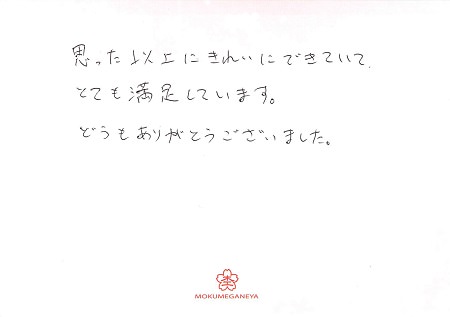 思った以上にきれいにできていて、
とても満足しています。
どうもありがとうございました。
MOKUMEGANEYA